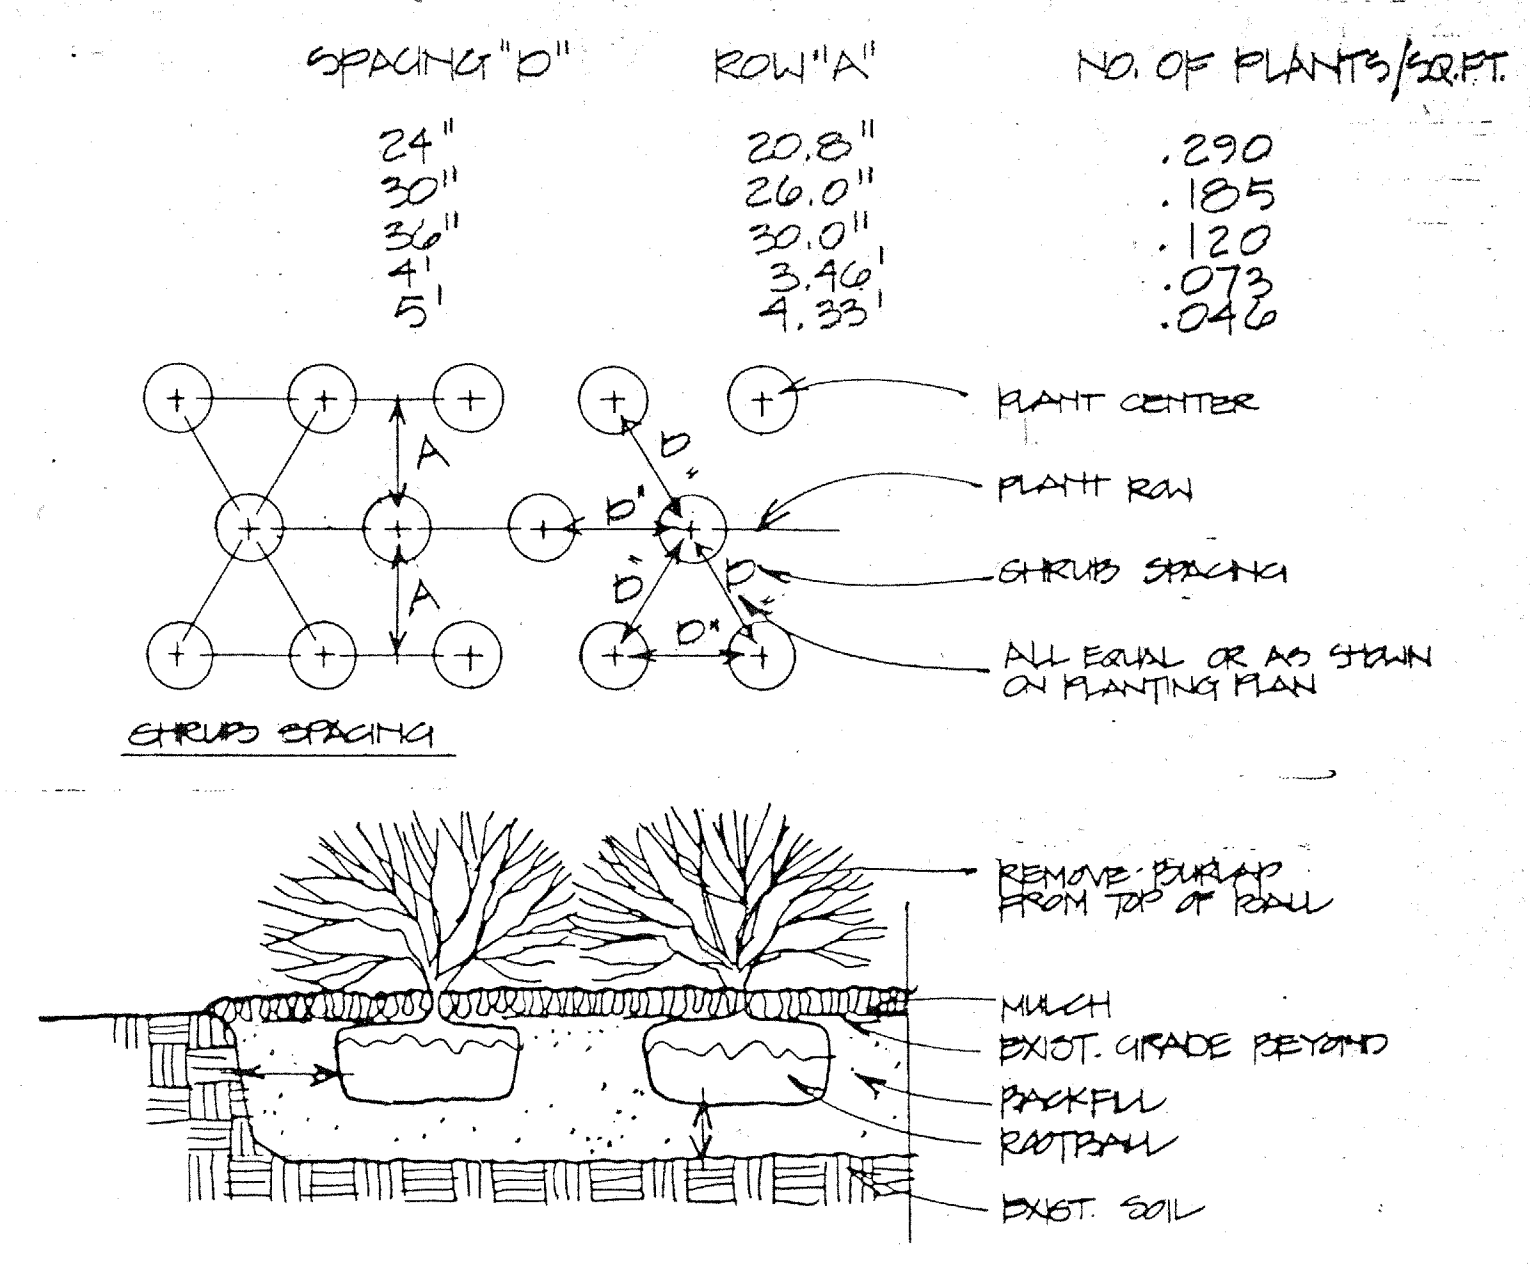 SPACING "D" ROW "A" NO. OF PLANTS/SQ.FT.
24" 20.8" .290
30" 26.0" .185
36" 30.0" .120
4' 3.46' .073
5' 4.33' .046
PLANT CENTER
A
D"
PLANT ROW
D"
D"
D"
SHRUB SPACING
A
D"
ALL EQUAL OR AS SHOWN
ON PLANTING PLAN
SHRUB SPACING
REMOVE BURLAP
FROM TOP OF BALL
MULCH
EXIST. GRADE BEYOND
BACKFILL
ROOTBALL
EXIST. SOIL